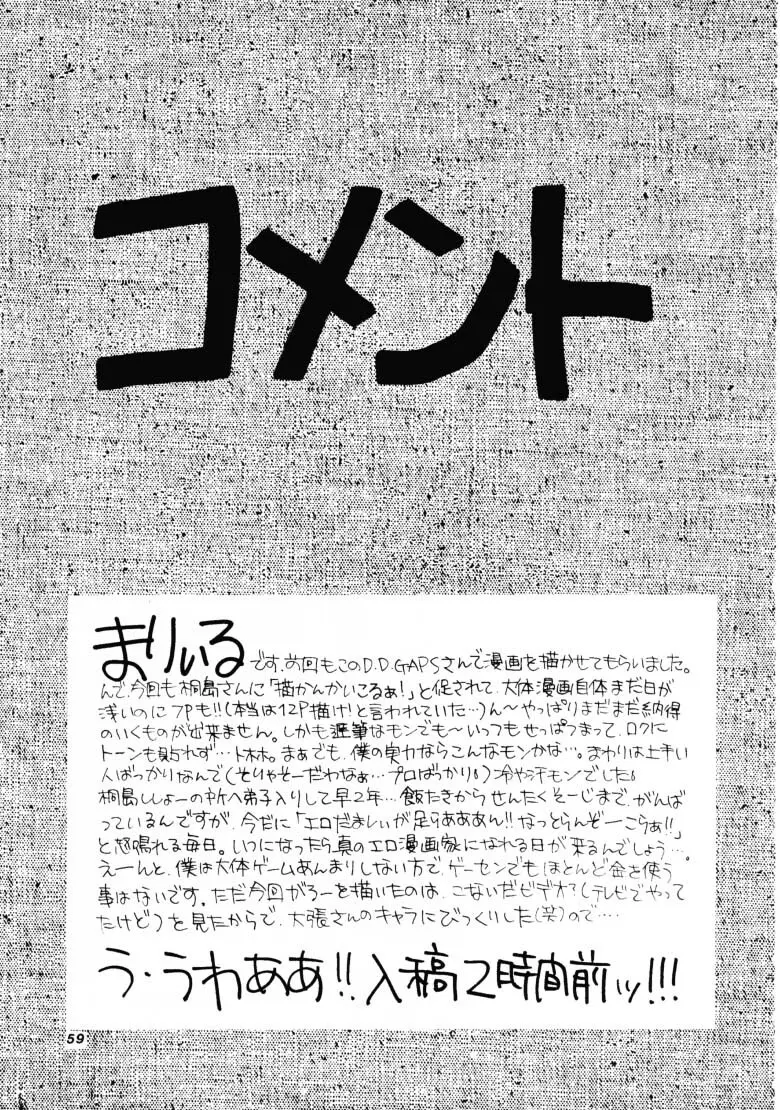 コメント
まりぃるです。前回もこのD.D.GAPSさんで漫画を描かせてもらいました。
んで、今回も桐島さんに「描かんかいこるぁ!」と促されて、大体漫画自体まだ日が
浅いのに7Pも!!(本当は12P描け!と言われていた…)ん〜やっぱりまだまだ納得
のいくものが出来ません。しかも遅筆なモンでも〜いっつもせっぱつまって、ロクに
トーンも貼れず…トホホ。まぁでも、僕の実力ならこんなモンかな…。まわりは上手い
人ばっかりなんで(そりゃそーだわなぁ…プロばっかり。)冷や汗モンでした。
桐島ししょーの所へ弟子入りして早2年…飯たきからせんたくそーじまで、がんば
っているんですが、今だに「エロだましぃが足らああん!!なっとらんぞーこらぁ!!」
と怒鳴れる毎日。いつになったら真のエロ漫画家になれる日が来るんでしょう…。
えーんと、僕は大体ゲームあんまりしない方で、ゲーセンでもほとんど金を使う
事はないです。ただ今回がろーを描いたのは、こないだビデオ?(テレビでやって
たけど)を見たからで、大張さんのキャラにびっくりした(笑)ので‥‥
う・うわあああ!!入稿2時間前ッ!!!
59